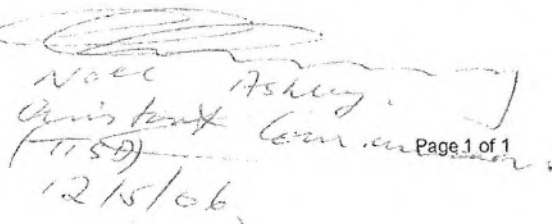 Noel Ashley.
Assistant Commissioner.
Page 1 of 1
(TISD)
12/5/06